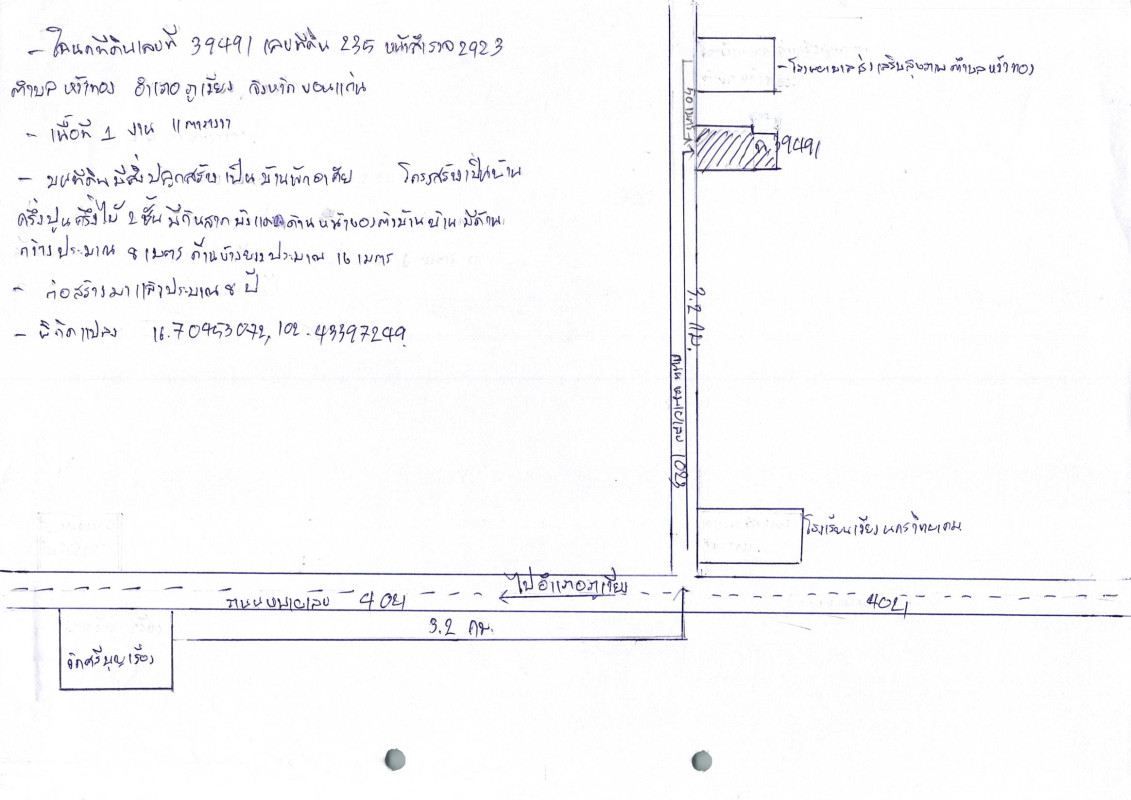 - โฉนดที่ดินเลขที่ 39491 เลขที่ดิน 235 หน้าสำรวจ 2923
ตำบล หว้าทอง อำเภอ ภูเวียง จังหวัด ขอนแก่น
- เนื้อที่ 1 งาน 11 ตารางวา
- บนที่ดินมีสิ่งปลูกสร้าง เป็นบ้านพักอาศัย โครงสร้างเป็นบ้าน
ครึ่งปูนครึ่งไม้ 2 ชั้น มีกันสาด ด้านหน้าของตัวบ้าน บ้านมีด้าน
กว้างประมาณ 8 เมตร ด้านข้างยาวประมาณ 16 เมตร
- ก่อสร้างมาแล้วประมาณ 8 ปี
- พิกัดแปลง 16.70953072, 102.43397249
- โรงพยาบาลส่งเสริมสุขภาพตำบลหว้าทอง
40 เมตร
ฉ.39491
9.2 กม.
ถนน หมายเลข 1023
โรงเรียนเวียงนครวิทยาคม
ไปอำเภอภูเวียง
ถนนหมายเลข 4021
4021
3.2 กม.
วัดศรีบุญเรือง